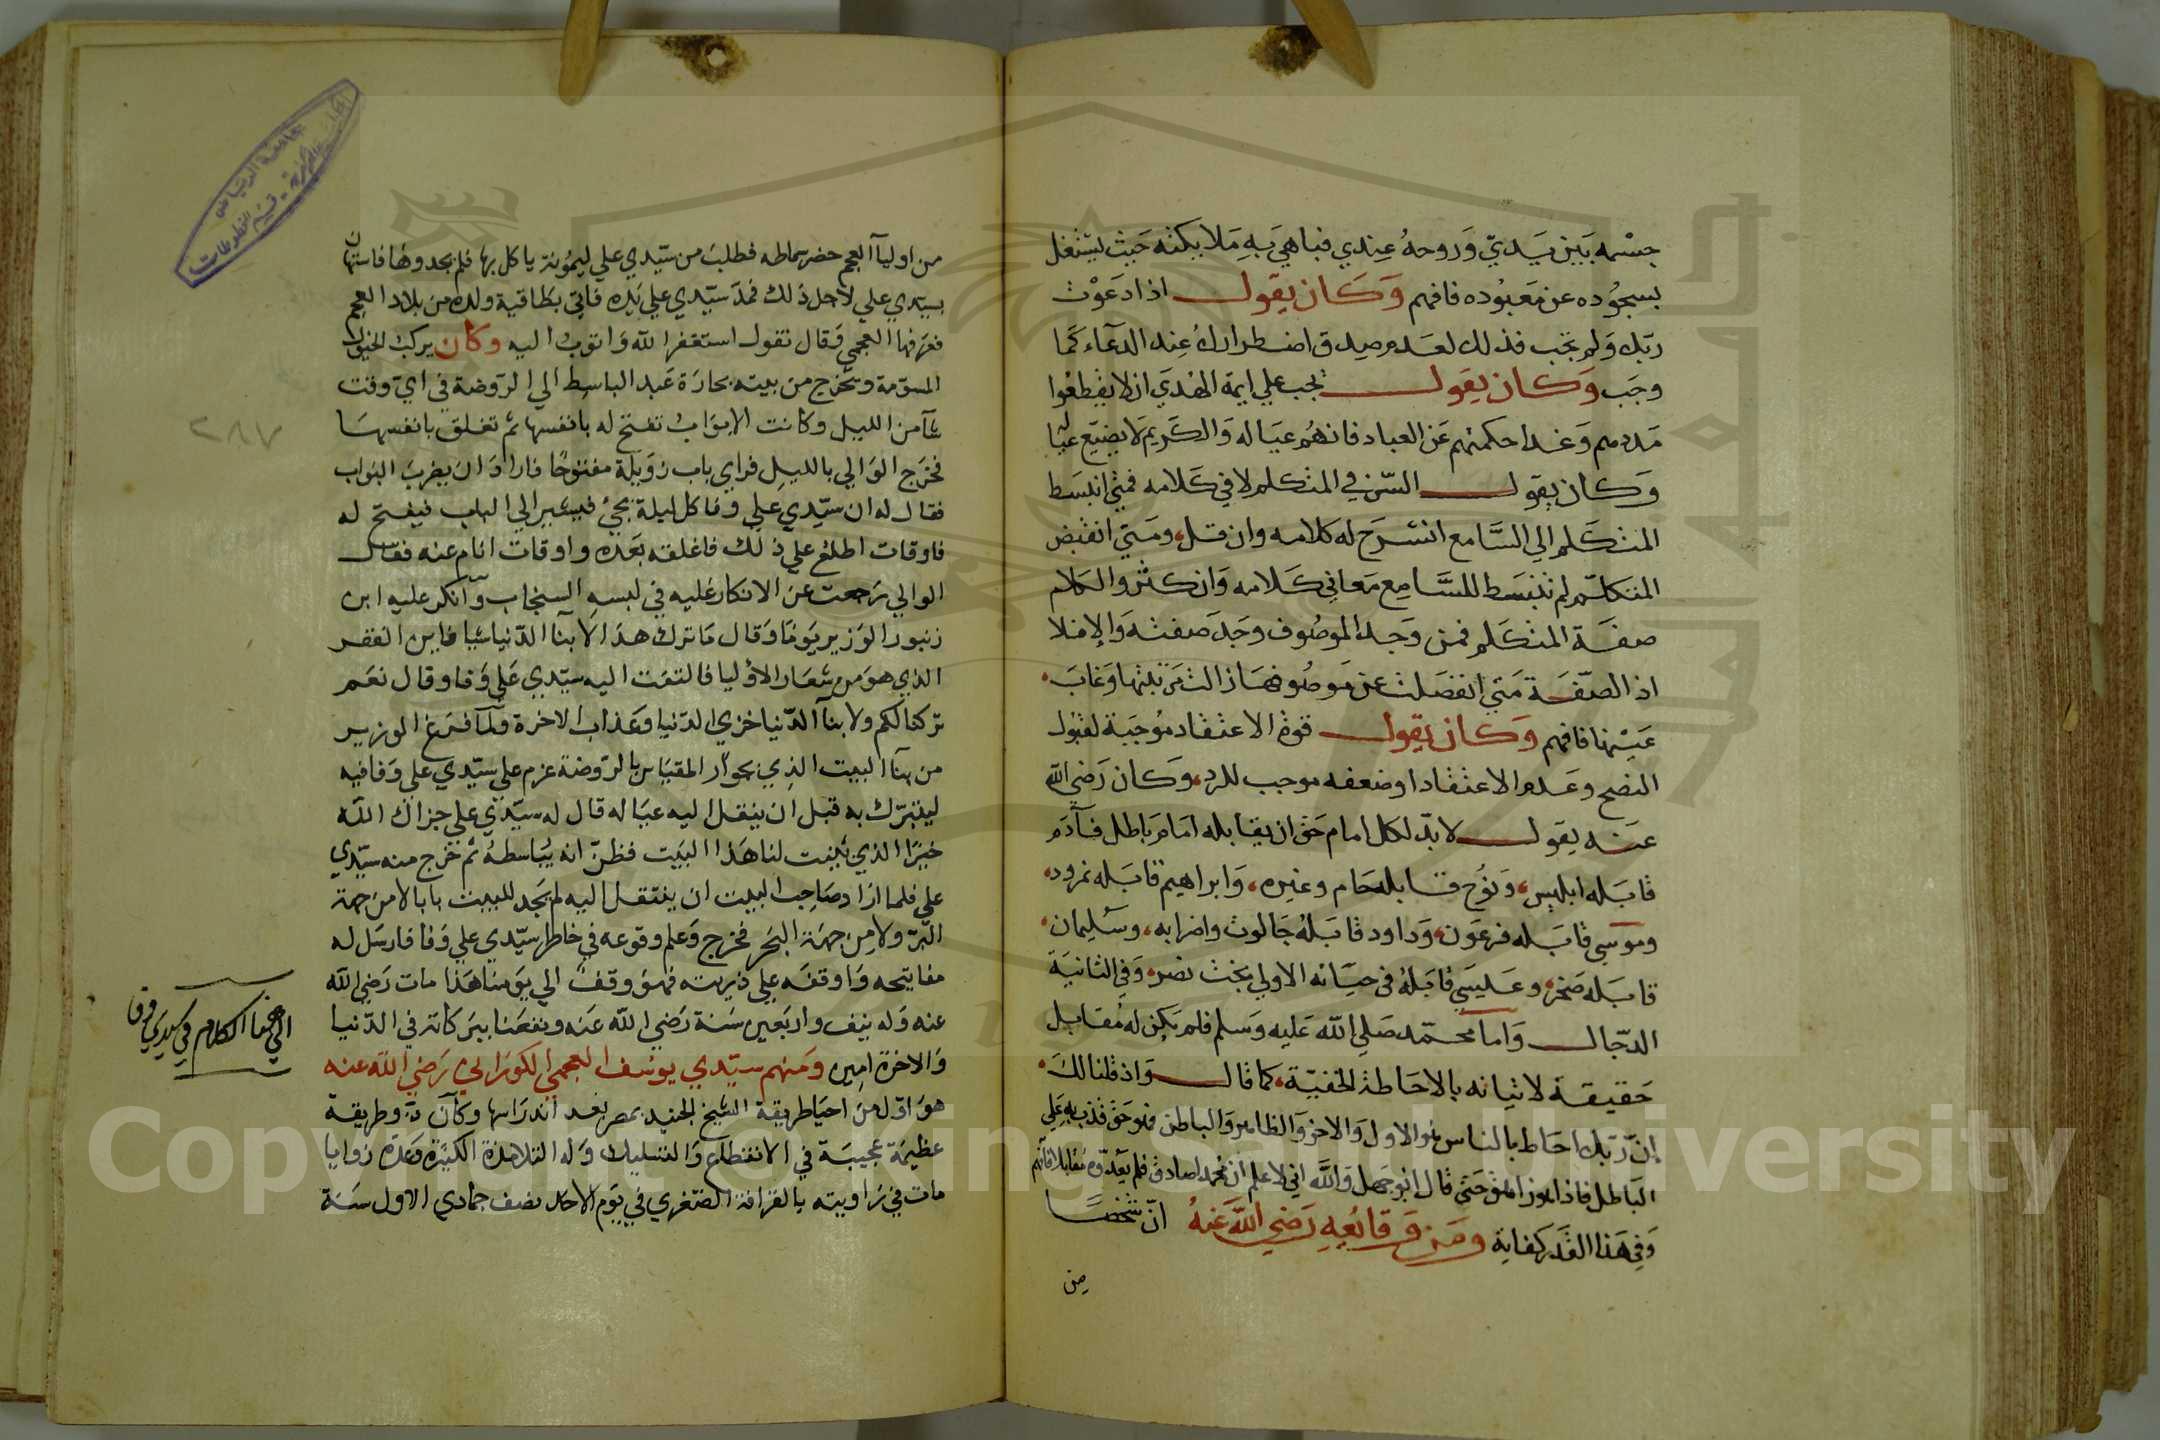 جسمه بين يدي وروحه عندي فباهي به ملايكته حيث لم يشتغل
بسجوده عن معبوده فافهم وكان يقول اذا دعوت
ربك ولم يجب فذلك لعدم صدق اضطرارك عند الدعاء كما
وجب وكان يقول يجب علي ايمة الهدي ان لا يقطعوا
مددهم وغدا حكمتهم عن العباد فانهم عياله والكريم لا يضيع عياله
وكان يقول السر في المتكلم لا في كلامه فمتي انبسط
المتكلم الي السامع انشرح له كلامه وان قل، ومتي انقبض
المتكلم لم تنبسط للسامع معاني كلامه وان كثر والكلام
صفة المتكلم فمن وجد الموصوف وجد صفته والا فلا
اذ الصفة متي انفصلت عن موصوفها زالت مرتبتها وغاب
عينها فافهم وكان يقول قوة الاعتقاد موجبة لقبول
النصح وعدم الاعتقاد او ضعفه موجب للرد، وكان رضي الله
عنه يقول لا بد لكل امام حق ان يقابله امام باطل فآدم
قابله ابليس، ونوح قابله حام وغيره، وابراهيم قابله نمرود،
وموسي قابله فرعون، وداود قابله جالوت واضرابه، وسليمان
قابله صخر، وعيسي قابله في حياته الاولي بخت نصر، وفي الثانية
الدجال واما محمد صلي الله عليه وسلم فلم يكن له مقابل
حقيقة لاتيانه بالاحاطة الخفية، كما قال واذ قلنا لك
إن ربك احاط بالناس هو الاول والاخر والظاهر والباطن فهو حق قذف به علي
الباطل فاذا هو زاهق حتي قال ابو جهل والله اني لاعلم ان محمدا صادق فلم يعدوه مقابلا فافهم
وفي هذا القدر كفاية ومن وقايعه رضي الله عنه ان شخصا
من
من اوليآ العجم حضر سماطه فطلب من سيدي علي ليمونة ياكل بها فلم يجدوها فاستهان
بسيدي علي لاجل ذلك فمد سيدي علي يده فاتي بطاقية ولده من بلاد العجم
فعرفها العجمي وقال نقول استغفر الله واتوب اليه وكان يركب الخيول
المسومة ويخرج من بيته بحارة عبد الباسط الي الروضة في اي وقت
شآ من الليل وكانت الابواب تفتح له بانفسها ثم تغلق بانفسها
فخرج الوالي بالليل فراي باب زويلة مفتوحا فاراد ان يضرب البواب
فقال له ان سيدي علي وفا كل ليلة يجئ فيشير الي الباب فيفتح له
فاوقات اطلع علي ذلك فاغلقه بعده واوقات انام عنه فقال
الوالي رجعت عن الانكار عليه في لبسه السنجاب وانكر عليه ابن
زنبور الوزير يوما وقال ما ترك هذا لابنآ الدنيا شيا فاين الفقر
الذي هو من شعار الاوليا فالتفت اليه سيدي علي وفا وقال نعم
تركنا لكم ولابنآ الدنيا خزي الدنيا وعذاب الاخرة ولما فرغ الوزير
من بنآ البيت الذي بجوار المقياس بالروضة عزم علي سيدي علي وفا فيه
ليتبرك به قبل ان ينتقل اليه عياله قال له سيدي علي جزاك الله
خيرا الذي بنيت لنا هذا البيت فظن انه يباسطه ثم خرج منه سيدي
علي فلما اراد صاحب البيت ان ينتقل اليه لم يجد للبيت بابا لا من جهة
البر ولا من جهة البحر فخرج وعلم وقوعه في خاطر سيدي علي وفا فارسل له
مفاتيحه واوقفه علي ذريته فهو وقف الي يومنا هذا مات رضي الله
عنه وله نيف واربعين سنة رضي الله عنه ونفعنا ببركاته في الدنيا
والاخرة امين ومنهم سيدي يوسف العجمي الكوراني رضي الله عنه
هو اول من احيا طريقة الشيخ الجنيد بمصر بعد اندراسها وكان ذو طريقة
عظيمة عجيبة في الانقطاع والتسليك وله التلامذة الكثيرة وعدة زوايا
مات في زاويته بالقرافة الصغري في يوم الاحد نصف جمادي الاول سنة
الي هنا الكلام في سيدي وفا
٢٨٧
جامعة الرياض
قسم المخطوطات
Copyright © King Saud University